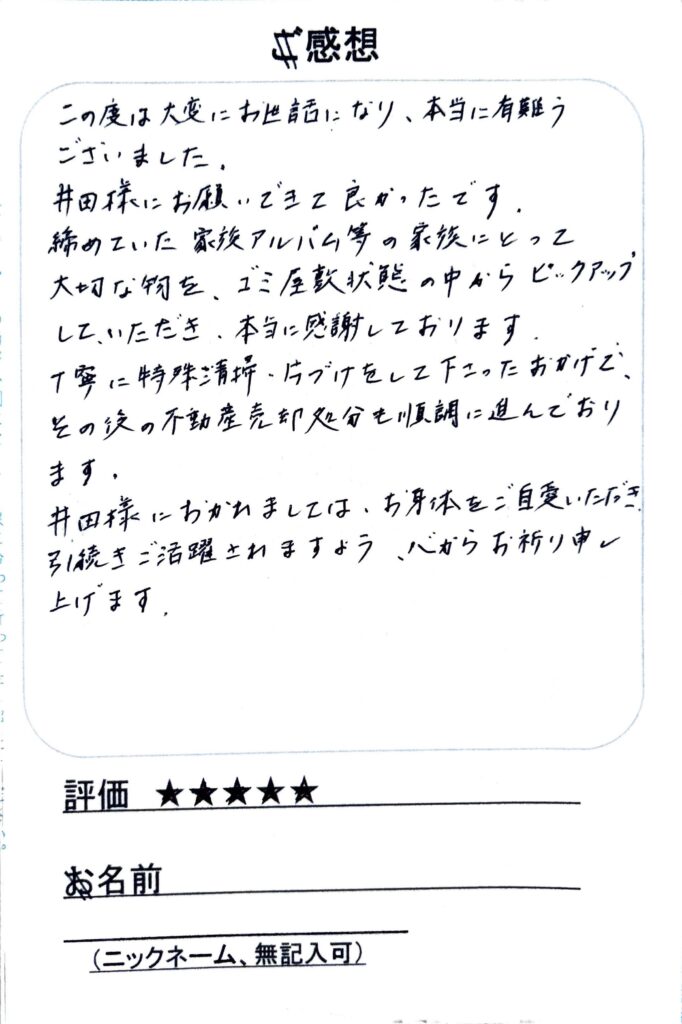 ご感想
この度は大変にお世話になり、本当に有難う
ございました.
井田様にお願いできて良かったです.
締めていた家族アルバム等の家族にとって
大切な物を、ゴミ屋敷状態の中からピックアップ
して、いただき、本当に感謝しております.
丁寧に特殊清掃・片づけをして下さったおかげで、
その後の不動産売却処分も順調に進んでおり
ます.
井田様におかれましては、お身体をご自愛いただき、
引続きご活躍されますよう、心からお祈り申し
上げます.
評価 ★★★★★
お名前
(ニックネーム、無記入可)